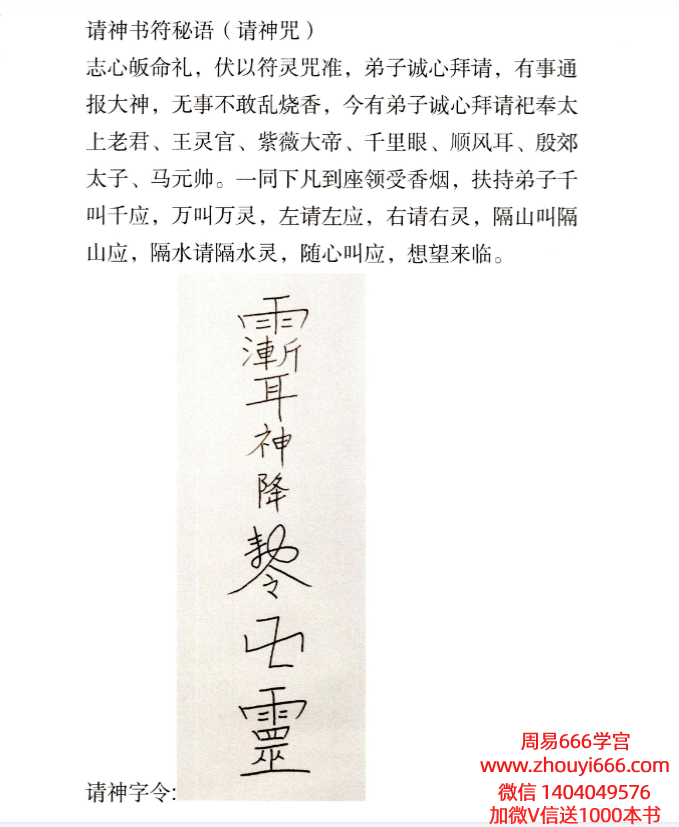 请神书符秘语（请神咒）
志心皈命礼，伏以符灵咒准，弟子诚心拜请，有事通
报大神，无事不敢乱烧香，今有弟子诚心拜请祀奉太
上老君、王灵官、紫薇大帝、千里眼、顺风耳、殷郊
太子、马元帅。一同下凡到座领受香烟，扶持弟子千
叫千应，万叫万灵，左请左应，右请右灵，隔山叫隔
山应，隔水请隔水灵，随心叫应，想望来临。
耳
神
降
靈
请神字令:
周易666学宫
www.zhouyi666.com
微信 1404049576
加微V信送1000本书